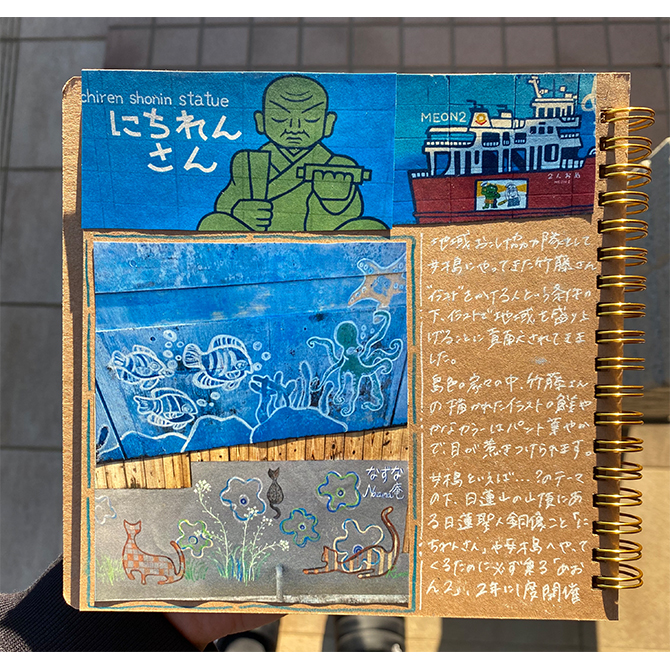 chiren shonin statue
にちれん
さん
MEON2
地域おこし協力隊として
女木島にやってきた竹藤さん
"イラスト"をかける人という条件の
下、イラストで地域を盛り上
げることに貢献されてきま
した。
島色の家々の中、竹藤さん
の描かれたイラストの鮮や
かなカラーはパッと華やか
で、目が惹きつけられます。
女木島といえば…?のテーマ
の下、日蓮山の山頂にあ
る日蓮聖人銅像こと「に
ちれんさん」や女木島へやって
くるために必ず乗る「めお
ん2」、2年に1度開催
なすな
庵